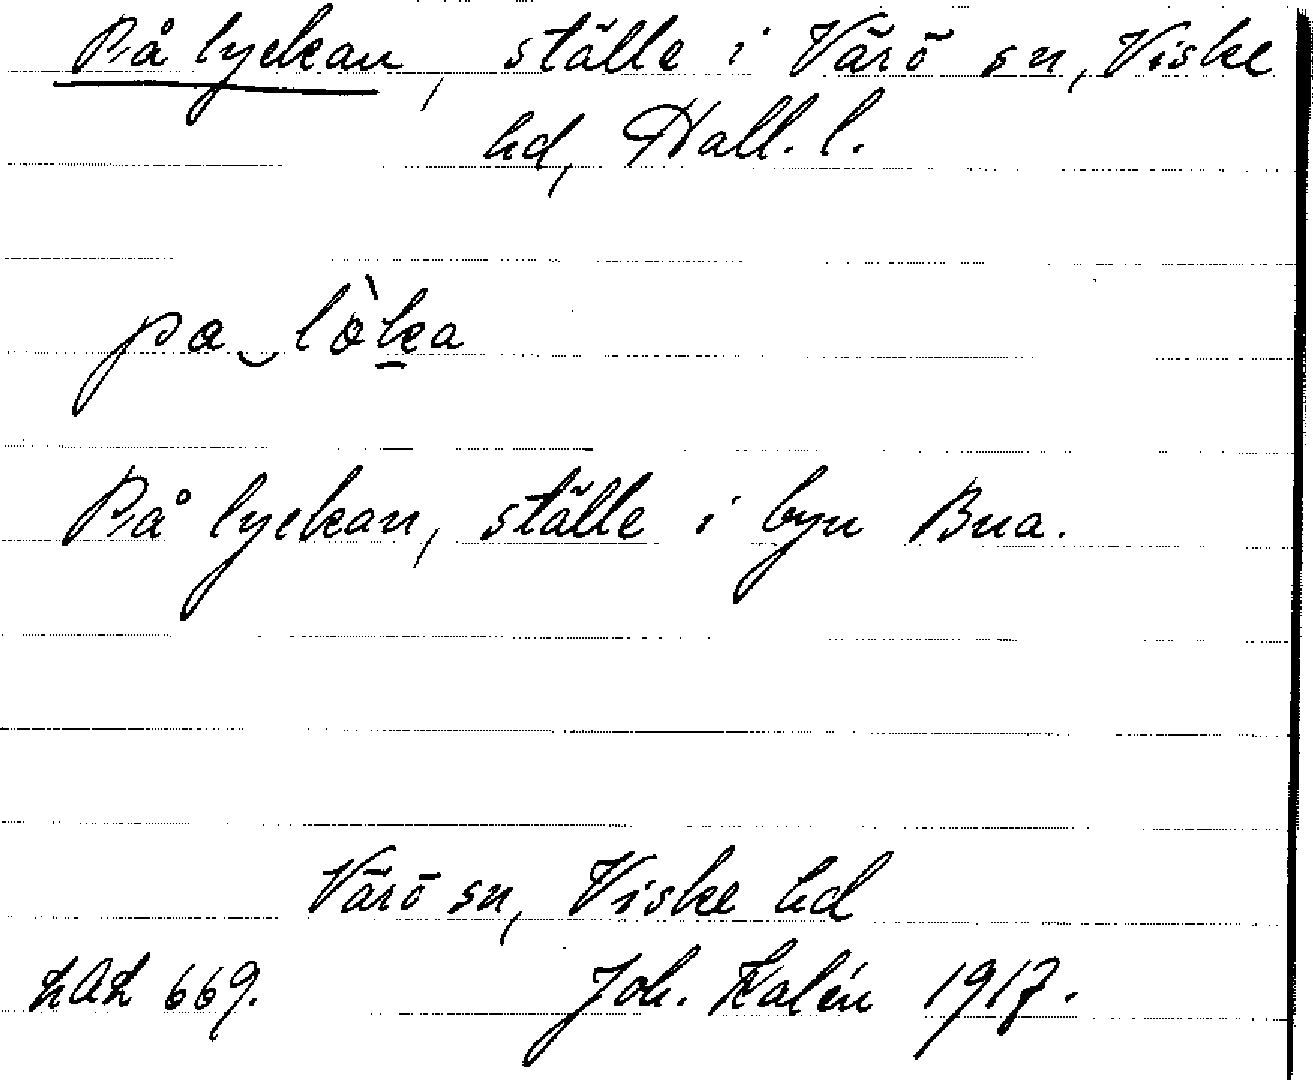 På lyckan, ställe i Värö sn, Viske
hd, Hall. l.
pa lòka
På lyckan, ställe i byn Bua.
Värö sn, Viske hd
LAL 669. Joh. Kalén 1917.